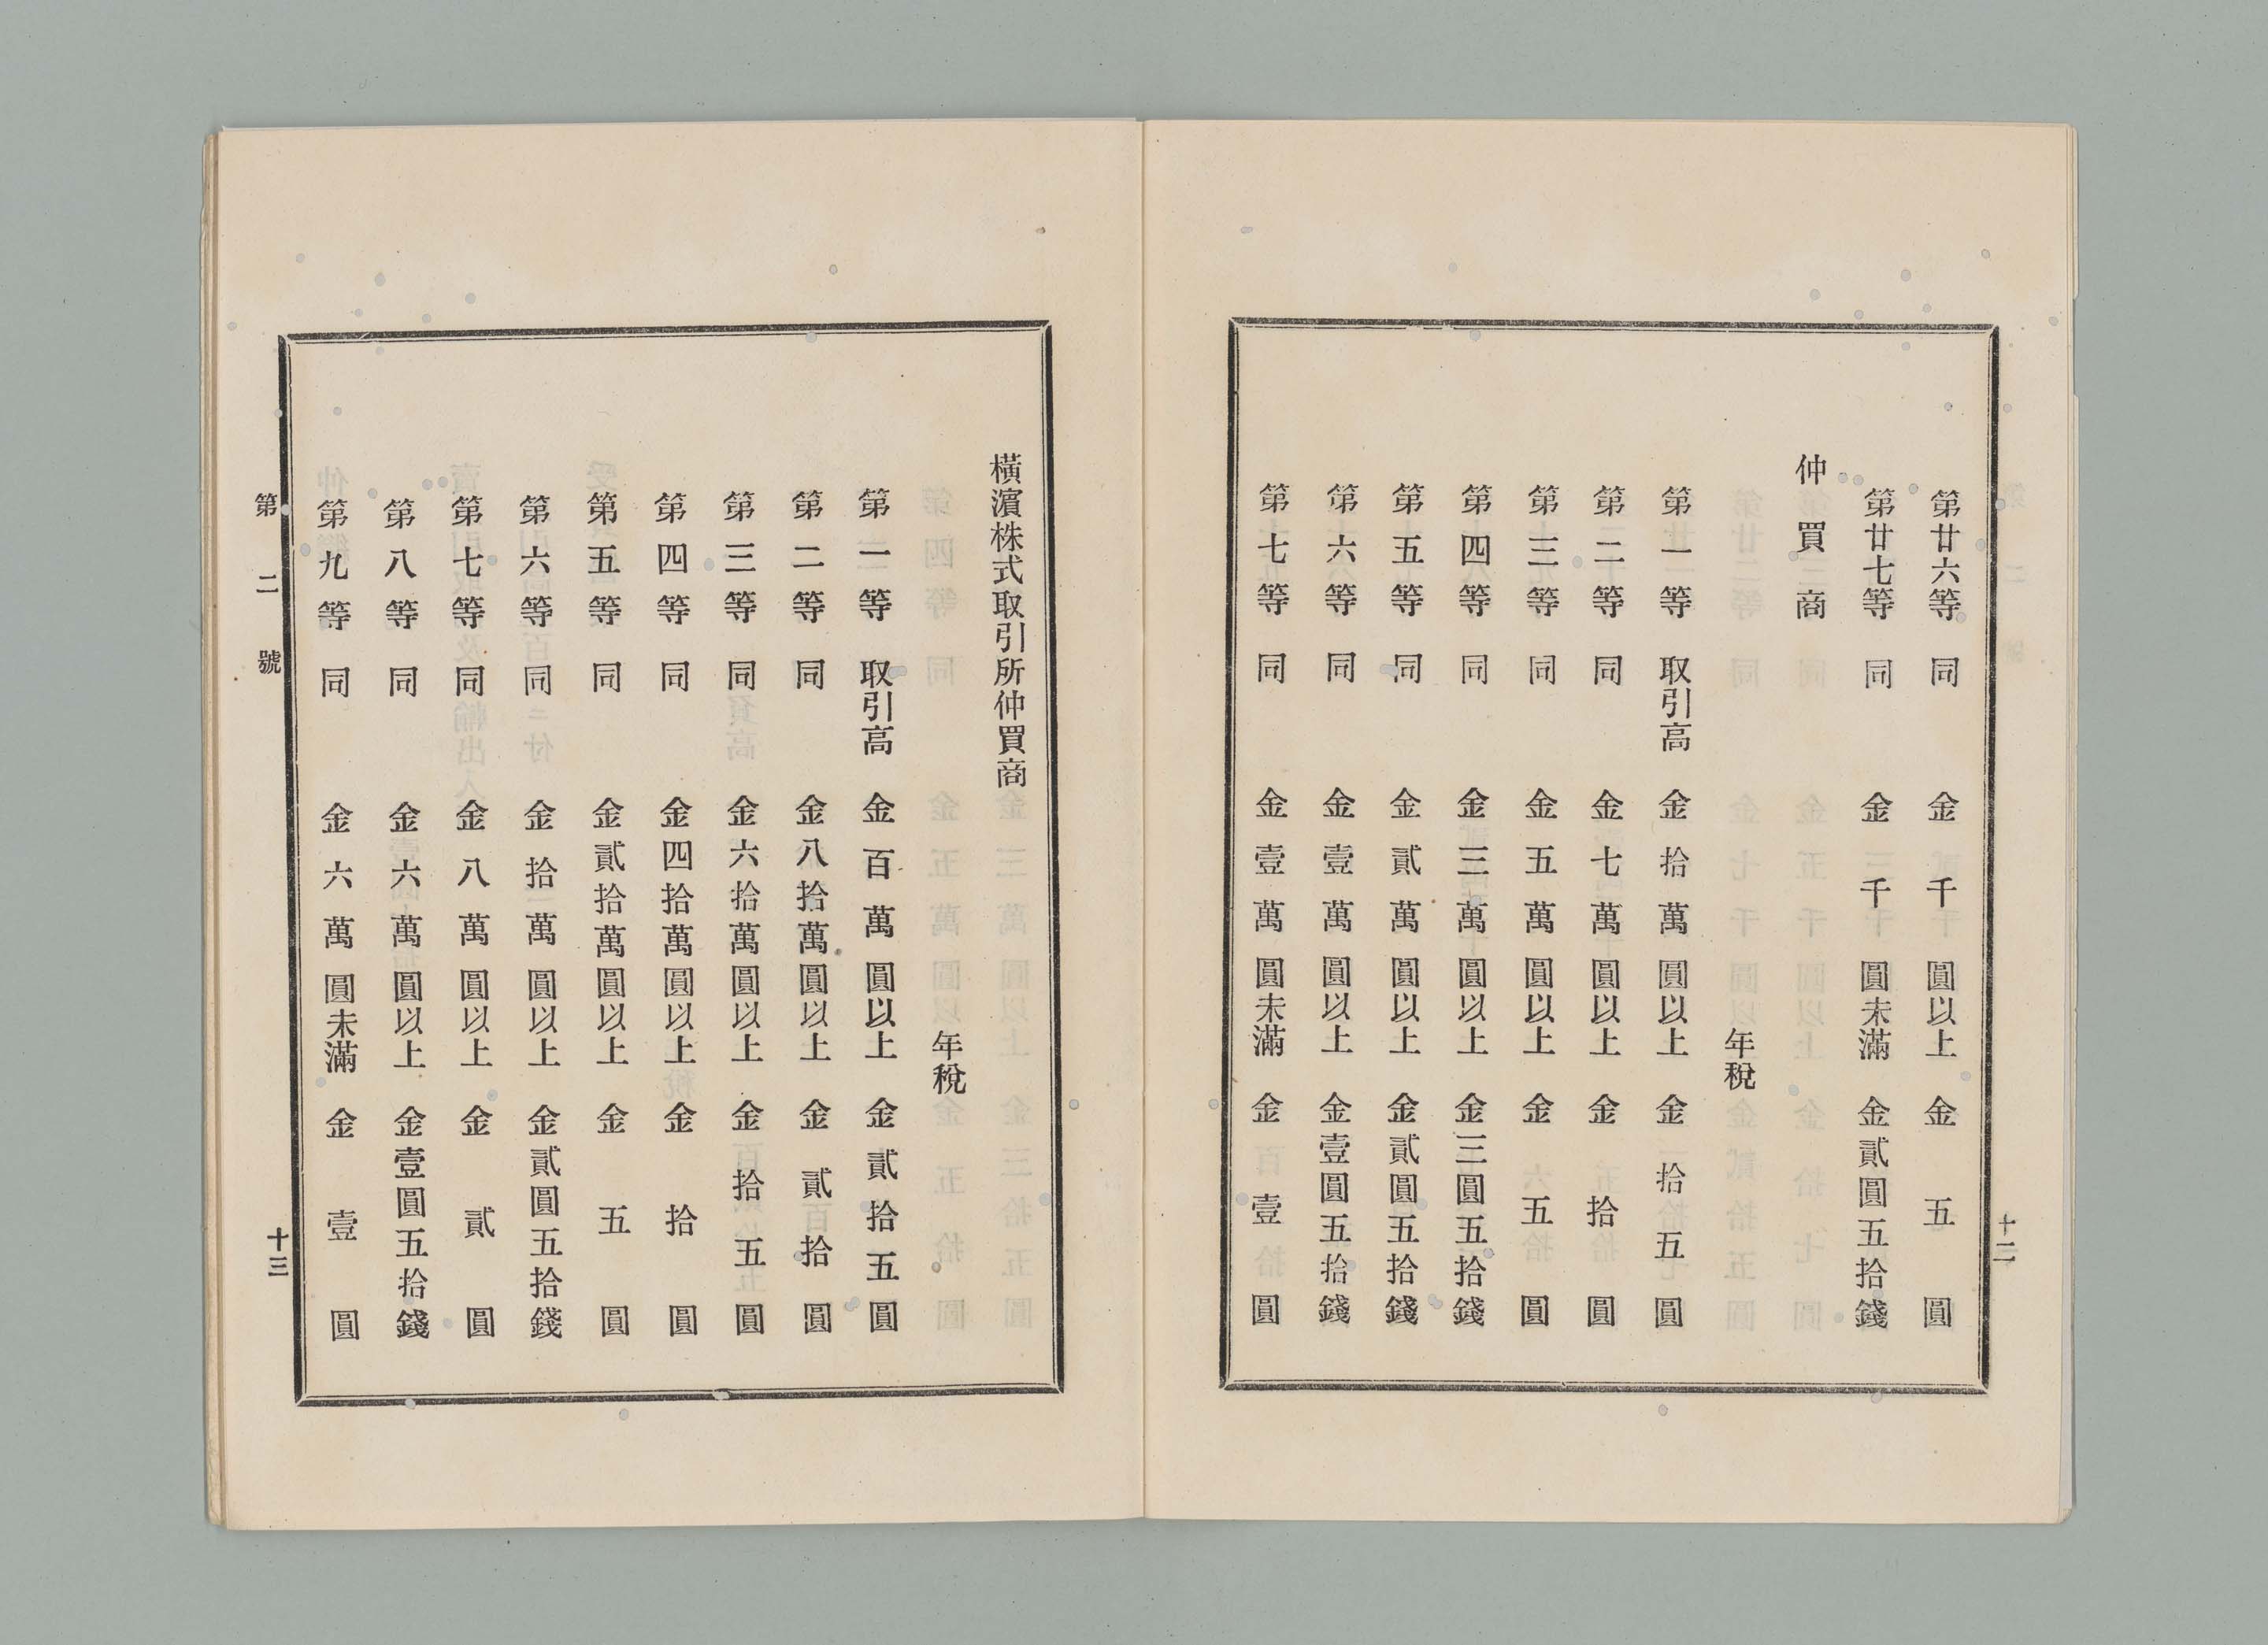 第廿六等 同 金千圓以上 金五圓
第廿七等 同 金千圓未滿 金貳圓五拾錢
仲買商
年稅
第一等 取引高 金拾萬圓以上 金拾五圓
第二等 同 金七萬圓以上 金拾圓
第三等 同 金五萬圓以上 金五圓
第四等 同 金三萬圓以上 金三圓五拾錢
第五等 同 金貳萬圓以上 金貳圓五拾錢
第六等 同 金壹萬圓以上 金壹圓五拾錢
第七等 同 金壹萬圓未滿 金壹圓
十二
橫濱株式取引所仲買商
年稅
第一等 取引高 金百萬圓以上 金貳拾五圓
第二等 同 金八拾萬圓以上 金貳拾圓
第三等 同 金六拾萬圓以上 金拾五圓
第四等 同 金四拾萬圓以上 金拾圓
第五等 同 金貳拾萬圓以上 金五圓
第六等 同 金拾萬圓以上 金貳圓五拾錢
第七等 同 金八萬圓以上 金貳圓
第八等 同 金六萬圓以上 金壹圓五拾錢
第九等 同 金六萬圓未滿 金壹圓
第二號
十三